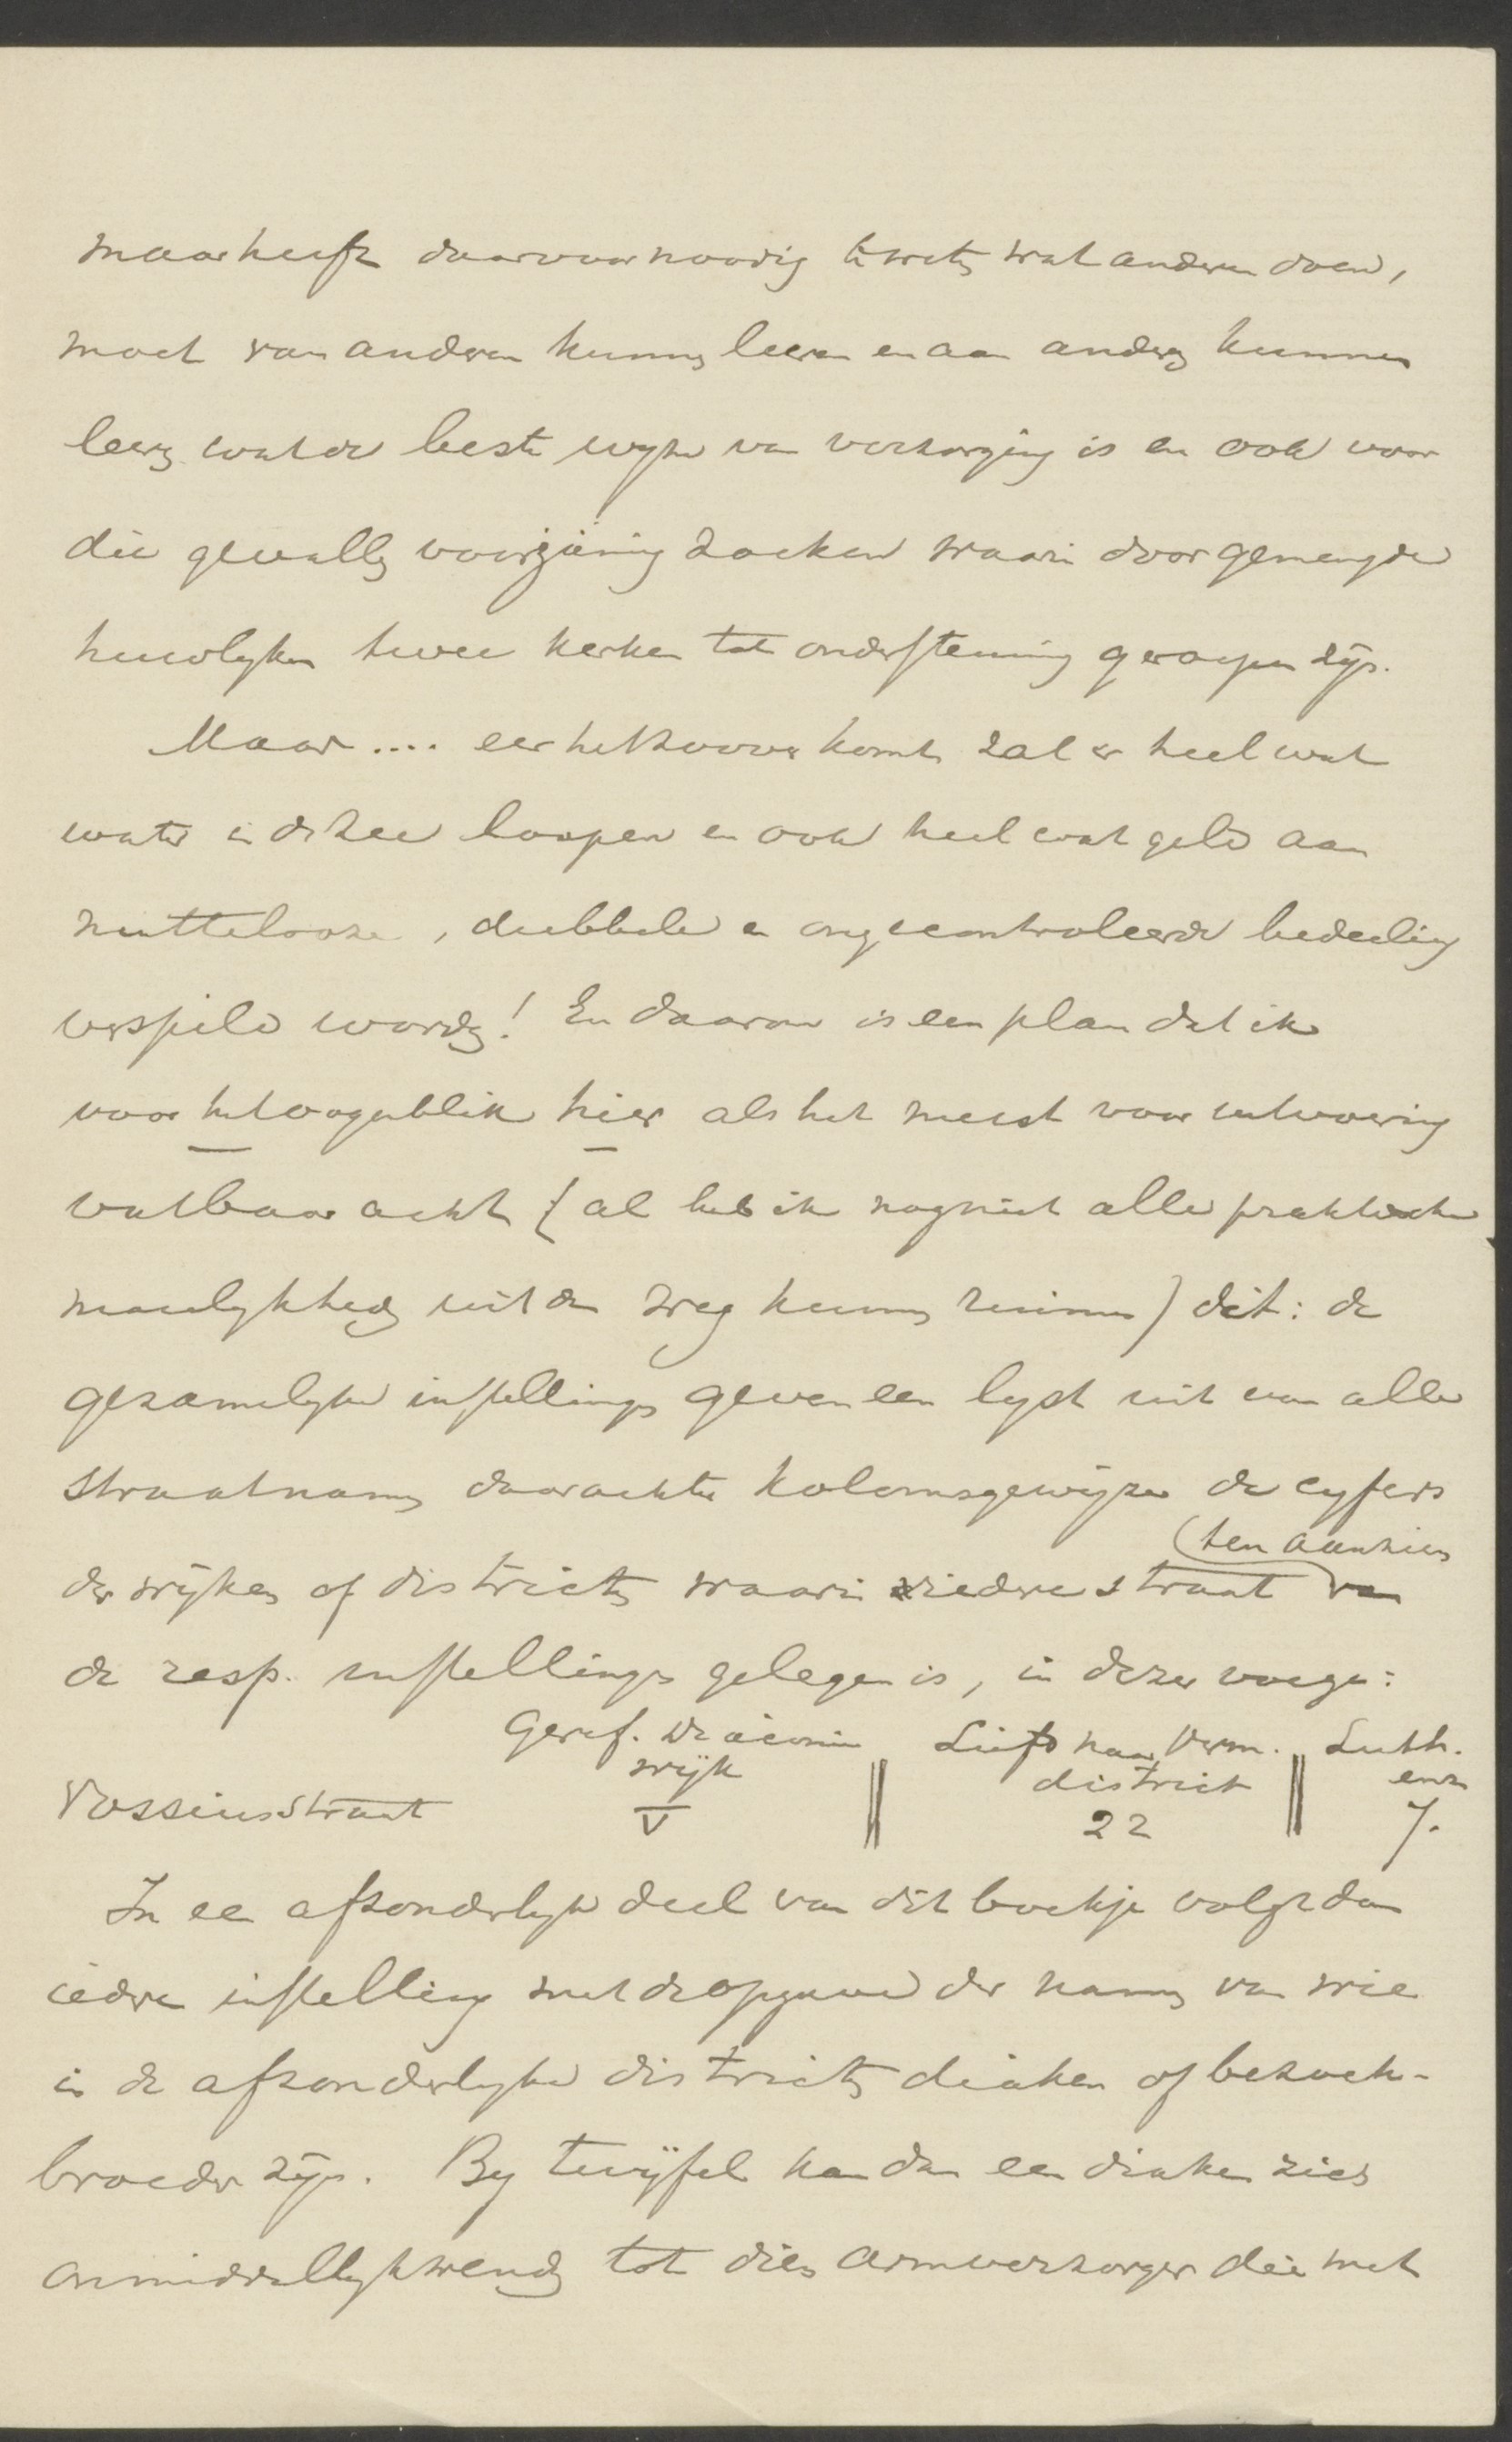 maar heeft daarvoor noodig te weten wat anderen doen,
moet van anderen kunnen leeren en aan anderen kunnen
leeren wat de beste wyze van verzorging is en ook voor
die gevallen voorziening zoeken waarin door gemengde
huwelyken twee kerken tot ondersteuning geroepen zijn.
Maar .... eer het zoover komt zal er heel wat
water in de zee loopen en ook heel wat geld aan
nuttelooze, dubbele en ongecontroleerde bedeeling
verspild worden! En daarom is een plan dat ik
voor het oogenblik hier als het meest voor uitvoering
vatbaar acht (al heb ik nog niet alle praktische
moeilykheden uit den weg kunnen ruimen) dit: de
gezamelyke instellingen geven een lyst uit van alle
straatnamen daarachter kolomsgewijze de cyfers
(ten aanzien
der wijken of districten waarin iedere straat van
de resp. instellingen gelegen is, in dezer voege:
Geref. Diaconie Liefd naar Verm. Luth.
wijk district enz
Vossiusstraat V 22 7.
In een afzonderlyk deel van dit boekje volgt dan
iedere instelling met de opgave der namen van wie
in de afzonderlyke districten diaken of bezoek-
broeder zijn. By twijfel kan dan een diaken zich
onmiddellyk wenden tot dien armverzorger die met